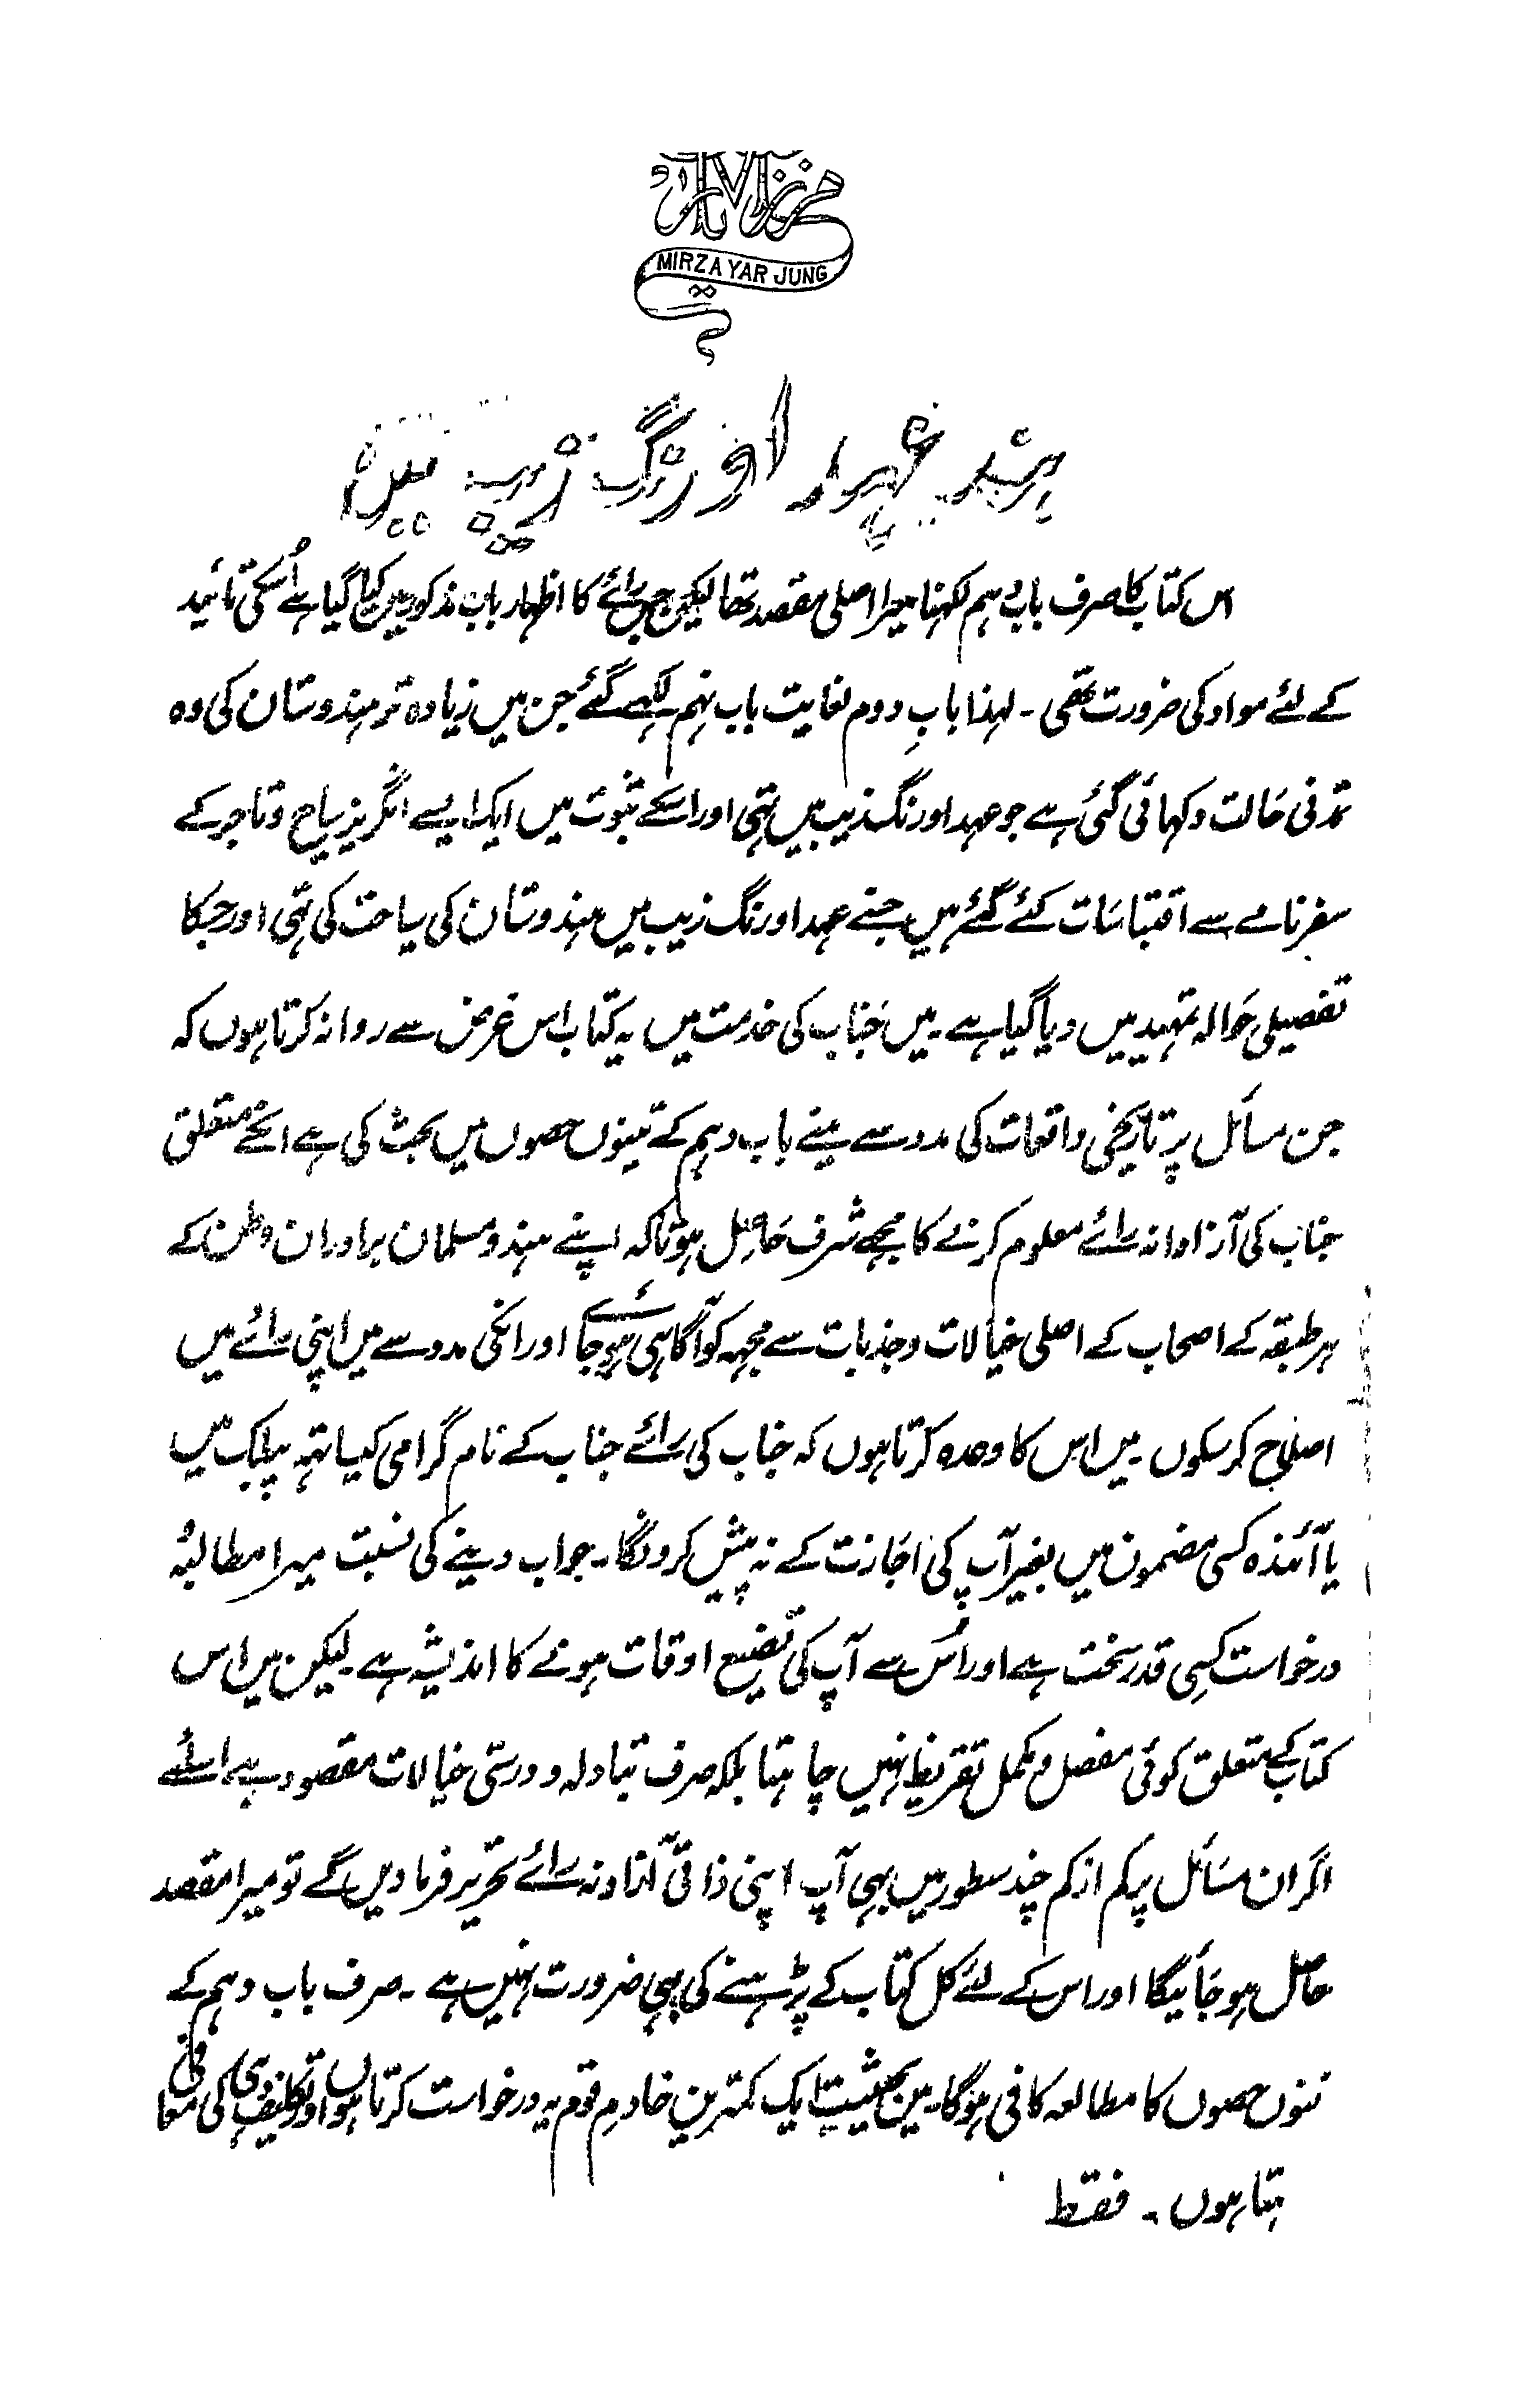 مرزا یار
MIRZA YAR JUNG
ہند عہد اورنگ زیب میں
اس کتاب کا صرف باب دہم لکہنا میرا اصلی مقصد تھا لیکن جس رائے کا اظہار باب مذکور میں کیا گیا ہے اُسکی تائید
کے لئے مواد کی ضرورت تھی ۔ لہذا بابِ دوم لغایت باب نہم لکہے گئے جن میں زیادہ تر ہندوستان کی وہ
تمدنی حالت دکہائی گئی ہے جو عہد اورنگ زیب میں تہی اور اسکے ثبوت میں ایک ایسے انگریز سیاح و تاجر کے
سفرنامے سے اقتباسات کئے گئے ہیں جسنے عہد اورنگ زیب میں ہندوستان کی سیاحت کی تہی اور جسکا
تفصیلی حوالہ تمہید میں دیا گیا ہے ۔ میں جناب کی خدمت میں یہ کتاب اس غرض سے روانہ کرتا ہوں کہ
جن مسائل پر تاریخی واقعات کی مدد سے مینے باب دہم کے تینوں حصوں میں بحث کی ہے انکے متعلق
جناب کی آزادانہ رائے معلوم کرنے کا مجہے شرف حاصل ہو تاکہ اپنے ہندو مسلمان برادران وطن کے
ہر طبقہ کے اصحاب کے اصلی خیالات و جذبات سے مجہہ کو آگاہی ہو جائے اور انکی مدد سے میں اپنی رائے میں
اصلاح کرسکوں ۔ میں اس کا وعدہ کرتا ہوں کہ جناب کی رائے جناب کے نام گرامی کیساتہہ پبلک میں
یا آئندہ کسی مضمون میں بغیر آپ کی اجازت کے نہ پیش کرونگا ۔ جواب دینے کی نسبت میرا مطالبہ
درخواست کسی قدر سخت ہے اور اُس سے آپ کی تضیع اوقات ہونے کا اندیشہ ہے ۔ لیکن میں اس
کتاب کے متعلق کوئی مفصل و مکمل تقریظ نہیں چاہتا بلکہ صرف تبادلہ و درستی خیالات مقصود ہے اسلئے
اگر ان مسائل پر کم از کم چند سطور میں بہی آپ اپنی ذاتی آزادانہ رائے تحریر فرما دیں گے تو میرا مقصد
حاصل ہو جائیگا اور اس کے لئے کل کتاب کے پڑہنے کی بہی ضرورت نہیں ہے ۔ صرف باب دہم کے
تنوں حصوں کا مطالعہ کافی ہوگا ۔ میں بحیثیت ایک کمترین خادمِ قوم یہ درخواست کرتا ہوں اور تکلیف دہی کی معافی
ہتا ہوں ۔ فقط